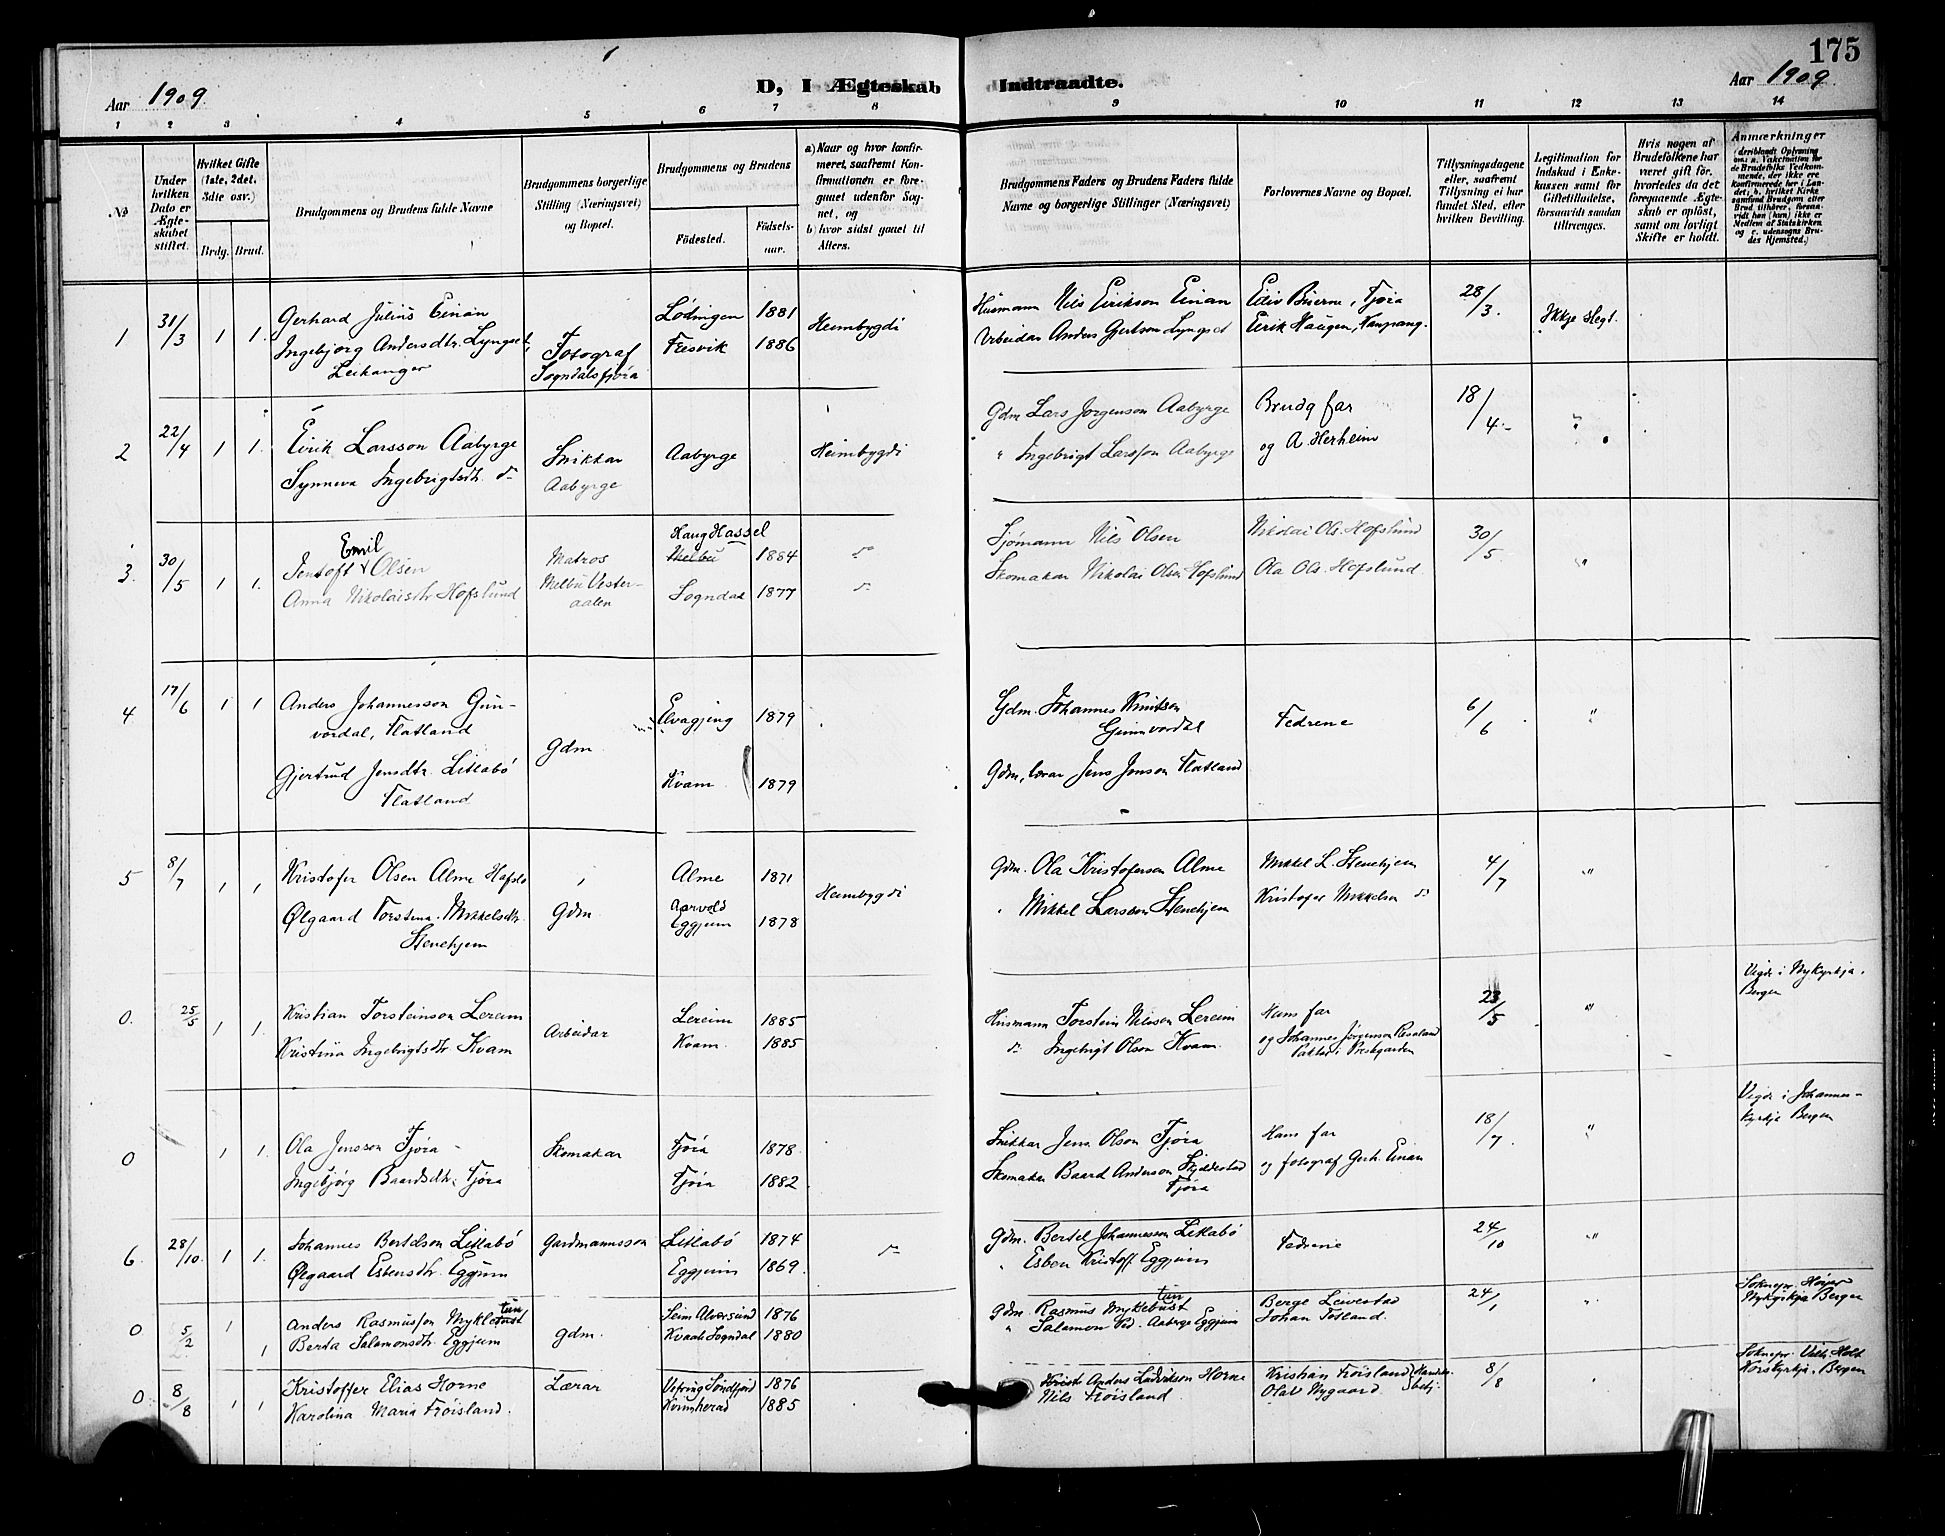 175
Aar 1909.
D, I Ægteskab
Indtraadte.
Aar 1909.
1 2 3 4 5 6 7 8 9 10 11 12 13 14
No
Under hvilken Dato er Ægteskabet stiftet.
Hvilket Gifte (1ste, 2det, 3die osv.)
Brdg. Brud.
Brudgommens og Brudens fulde Navne
Brudgommens borgerlige Stilling (Næringsvei) og Bopæl.
Brudgommens og Brudens
Fødested.
Fødselsaar.
a) Naar og hvor konfirmeret, saafremt Konfirmationen er foregaaet udenfor Sognet, og
b) hvor sidst gaaet til Alters.
Brudgommens Faders og Brudens Faders fulde Navne og borgerlige Stillinger (Næringsvei)
Forlovernes Navne og Bopæl.
Tillysningsdagene eller, saafremt Tillysning ei har fundet Sted, efter hvilken Bevilling.
Legitimation for Indskud i Enkekassen samt for Giftetilladelse, forsaavidt saadan tiltrænges.
Hvis nogen af Brudefolkene har været gift før, hvorledes da det foregaaende Ægteskab er opløst, samt om lovligt Skifte er holdt.
Anmærkninger (deriblandt Oplysning om: a. Vakcination for de Brudefolks Vedkommende, der ikke ere konfirmerede her i Landet; b. hvilket Kirkesamfund Brudgom eller Brud tilhører, forsaavidt han (hun) ikke er Medlem af Statskirken og c. udensogns Brudes Hjemsted.)
1 31/3 1 1. Gerhard Julius Einan Lødingen 1881 Heimbygdi Husmann Nils Eirikson Einan Fjøra 28/3. Ikkje Hegt.
Ingebjørg Andersdtr. Lyngset, Fotograf Feisvik 1886 Arbeidar Anders Gjertson Lyngset Eirik Haugen, Kaupang.
Leikanger Sogndalsfjøra
2 22/4 1 1. Eirik Larsson Aabyrge Snikkar Aabyrge Heimbygdi Gdm Lars Jørgenson Aabyrge Brudg far 18/4.- "
Synneva Ingebrigtsdtr. do Aabyrge " Ingebrigt Larsson Aabyrge og A Herheim
3. 30/5 1 1. Jentoft Emil Olsen Matros Haug Hassel Melbu 1884 do Sjømann Nils Olsen Nikolai Ols. Hofslund 30/5. "
Anna Nikolaisdtr Hofslund Melbu Vesteraalen Sogndal 1877 do Skomakar Nikolai Olsen Hofslund Ola Ols. Hofslund.
4 17/6 1 1 Anders Johannesson Gunvordal, Flatland Gdm. 1879 Gdm. Johannes Knutson Gunnvordal Fedrene 6/6 "
Gjertrud Jensdtr. Litlabø Flatland Kvam 1879 Gdm, lærar Jens Jenson Flatland
5 8/7 1 1 Kristofer Olsen Alme Hafslo Gdm. Alme 1871 Heimbygdi Gdm. Ola Kristoferson Alme Mikkel L. Stenehjem 4/7 "
Ølgaard Torstina Mikkelsdtr. Stenehjem Eggjum 1878 " Mikkel Larsson Stenehjem Kristofer Mikkelsen do
0. 25/5 1 1. Kristian Torsteinson Lereim Arbeidar Lereim 1885 Husmann Torstein Nilsson Lereim Hans far 23/5 " Vigde i Nykyrkja, Bergen
Kristina Ingebrigtsdtr. Kvam Kvam 1885 do Ingebrigt Olson Kvam. og Johannes Jørgenson i Prestgarden
0 1 1. Ola Jensson Fjøra Skomakar Fjøra 1878. Snikkar Jens Olson Fjøra Hans far 18/7. " Vigde i Johanneskyrkja Bergen
Ingebjørg Baardsdtr. Fjøra Fjøra 1882 Skomakar Baard Anderson Skjeldestad Fjøra og fotograf Gerh. Einan
6. 28/10. 1 1. Johannes Bertelson Litlabø Gardmannsson Litlabø 1874 do Gdm. Bertel Johannesson Litlabø Fedrene 24/10 "
Ølgaard Esbensdtr. Eggjum Eggjum 1869. " Esben Kristoff. Eggjum
0 5/2 1 1 Anders Rasmusson Myklebust tun gdm. Seim Alversund 1876 Gdm. Rasmus Myklebust tun Berge Leivestad 24/1 " Soknepr. Høyer Nykyrkja Bergen
Berta Salamonsdtr. Eggjum Kvaale Sogndal 1880 " Salamon Aaberge Eggjum Johan Fosland.
0. 8/8 1 1 Kristoffer Elias Horne Lærar Vefring Søndfjord 1876 Anders Ludvikson Horne Kristian Frøisland 8/8 Soknepr. Vilh. Holt Korskyrkja, Bergen
Karolina Maria Frøisland. Kvinnherad 1885. Nils Frøisland Olav Nygaard